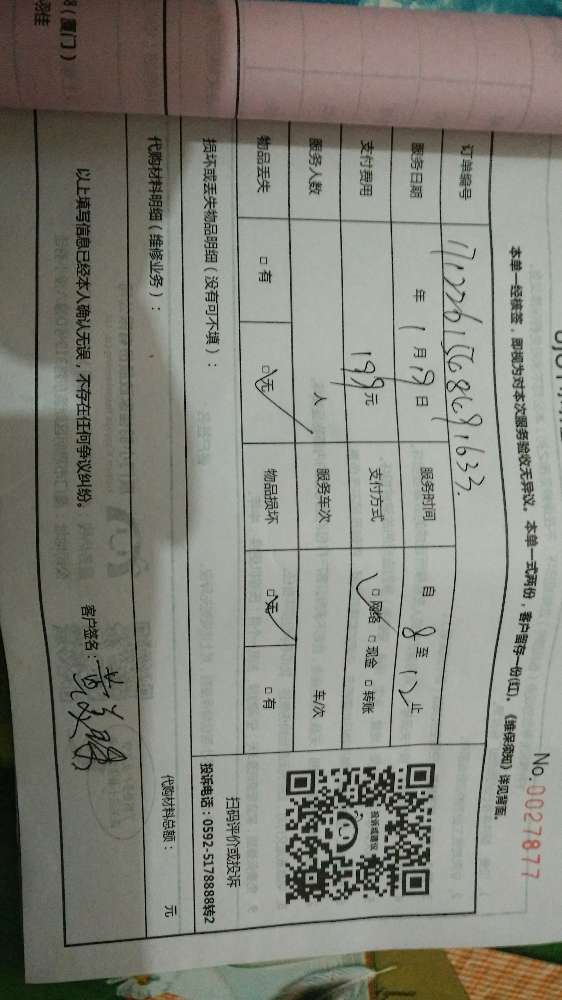 No.0027877
本单一经核签,即视为对本次服务验收无异议。本单一式两份,客户留存一份(红)。《维保须知》详见背面。
订单编号
服务日期 年 1 月 19 日 服务时间 自 8 至 12 止
支付费用 199 元 支付方式 □网络 □现金 □转账
服务人数 人 服务车次 车/次
物品丢失 □有 □无 物品损坏 □无 □有
投诉或建议
扫码评价或投诉
投诉电话:0592-5178888转2
损坏或丢失物品明细(没有可不填):
代购材料明细(维修业务): 代购材料总额: 元
以上填写信息已经本人确认无误,不存在任何争议纠纷。 客户签名:
(厦门)